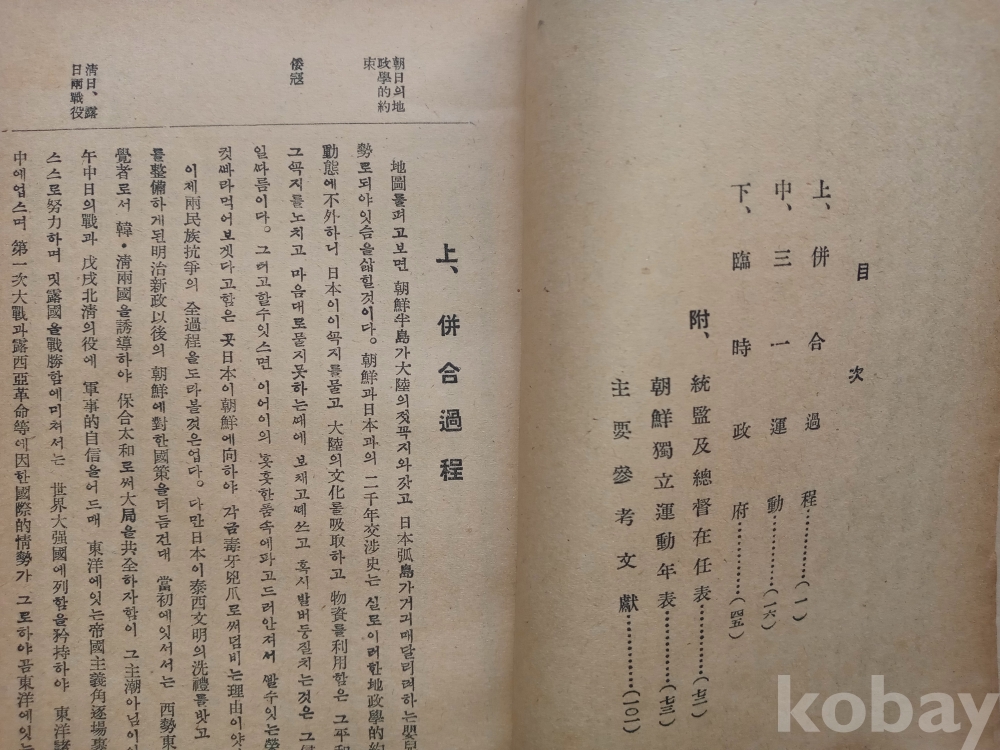 目次
上、併合過程…………(一)
中、三一運動…………(一六)
下、臨時政府…………(四五)
附、統監及總督在任表…………(七二)
朝鮮獨立運動年表…………(七三)
主要參考文獻…………(一〇一)
上、併合過程
朝日의地
政學的約
束
倭寇
淸日、露
日兩戰役
地圖를펴고보면 朝鮮半島가大陸의젓꼭지와갓고 日本弧島가거긔매달리려하는嬰兒
勢로되야잇슴을삷힐것이다。朝鮮과日本과의 二千年交涉史는 실로이러한地政學的約
動態에不外하니 日本이이꼭지를물고 大陸의文化를吸取하고 物資를利用함은 그平和
그꼭지를노치고 마음대로물지못하는때에 보채고떼쓰고 혹시발버둥질치는것은 그
일따름이다。그러고할수잇스면 이어이의훗훗한품속에파고드러안저서 쌀수잇는
컷빠라먹어보겟다고함은 곳日本이朝鮮에向하야 각금毒牙兇爪로써덤비는理由이
이제兩民族抗爭의 全過程을도라볼것은업다。다만日本이泰西文明의洗禮를밧고
를整備하게된明治新政以後의 朝鮮에對한國策을더듬건대 當初에잇서서는 西勢東
覺者로서 韓・淸兩國을誘導하야 保合太和로써大局을共全하자함이 그主潮아님이
午中日의戰과 戊戌北淸의役에 軍事的自信을어드매 東洋에잇는帝國主義角逐場裏
스스로努力하며 밋露國을戰勝함에미쳐서는 世界大强國에列함을矜持하야 東洋諸
中에업스며 第一次大戰과露西亞革命等에因한國際的情勢가 그로하야곰東洋에잇는
kobay